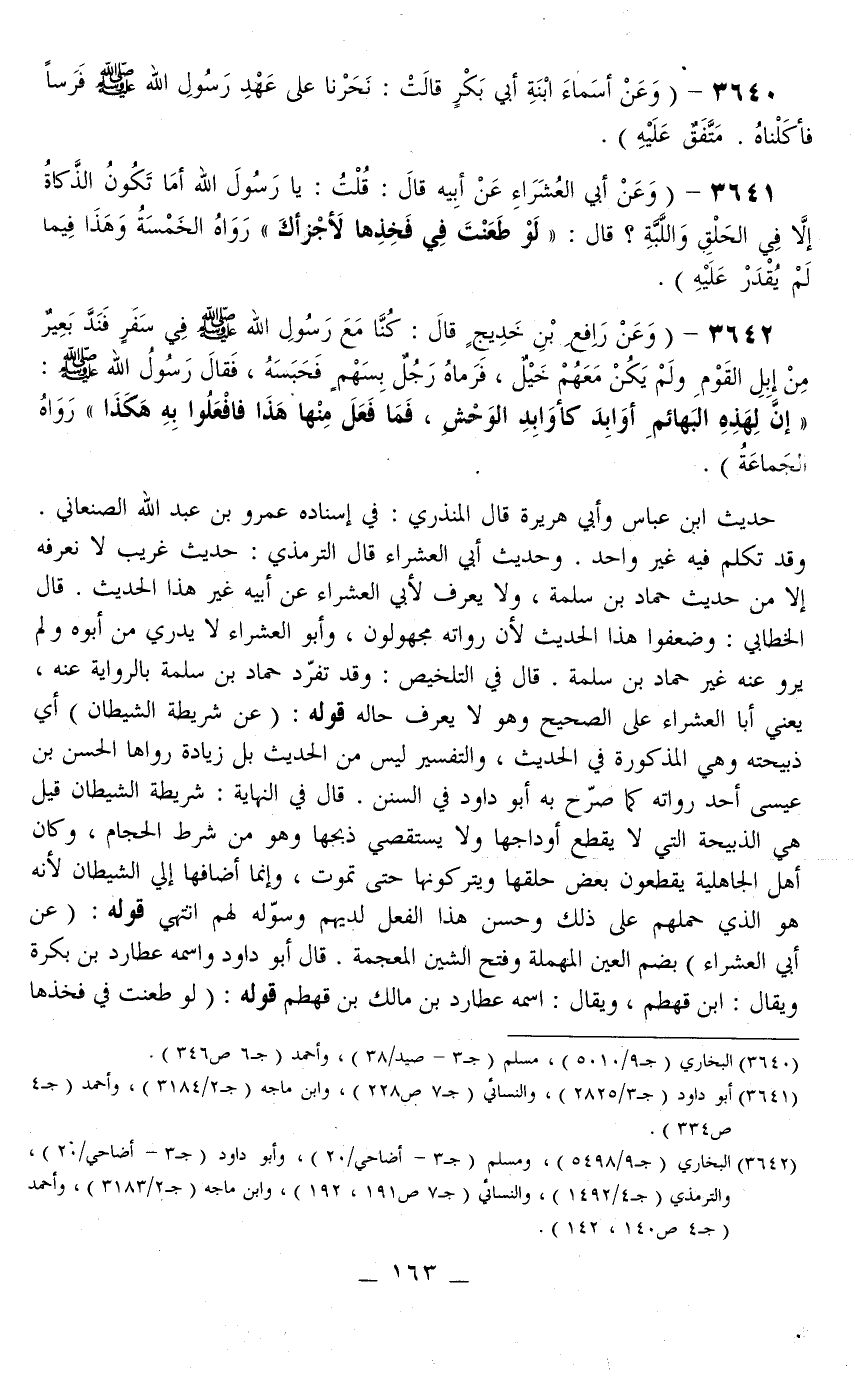 ٣٦٤٠ – ( وَعَنْ أسَماءَ ابْنَةِ أبي بَكْرٍ قالَتْ : نَحَرْنا على عَهْدِ رَسُولِ الله ﷺ فَرَساً
فأكَلْناهُ . مَتَّفَقٌ عَلَيْهِ ) .
٣٦٤١ – ( وَعَنْ أبي العُشَرَاءِ عَنْ أبيه قالَ : قُلْتُ : يا رَسُولَ الله أمَا تَكُونُ الذَّكاةُ
إلَّا فِي الحَلْقِ وَاللَّبَّةِ ؟ قال : « لَوْ طَعَنْتَ فِي فَخِذِها لَأجْزأكَ » رَوَاهُ الخَمْسَةُ وَهَذَا فِيما
لَمْ يُقْدَرْ عَلَيْهِ ) .
٣٦٤٢ – ( وَعَنْ رَافِعِ بْنِ خَدِيجٍ قالَ : كُنَّا مَعَ رَسُولِ الله ﷺ فِي سَفَرٍ فَنَدَّ بَعِيرٌ
مِنْ إبِلِ القَوْمِ ولَمْ يَكُنْ مَعَهُمْ خَيْلٌ ، فَرَماهُ رَجُلٌ بِسَهْمٍ فَحَبَسَهُ ، فَقالَ رَسُولُ الله ﷺ :
« إنَّ لِهَذِهِ البَهائمِ أوَابِدَ كأوَابِدِ الوَحْشِ ، فَمَا فَعَلَ مِنْها هَذَا فافْعَلُوا بِهِ هَكَذَا » رَوَاهُ
الجَماعَةُ ) .
حديث ابن عباس وأبي هريرة قال المنذري : في إسناده عمرو بن عبد الله الصنعاني .
وقد تكلم فيه غير واحد . وحديث أبي العشراء قال الترمذي : حديث غريب لا نعرفه
إلا من حديث حماد بن سلمة ، ولا يعرف لأبي العشراء عن أبيه غير هذا الحديث . قال
الخطابي : وضعفوا هذا الحديث لأن رواته مجهولون ، وأبو العشراء لا يدري من أبوه ولم
يرو عنه غير حماد بن سلمة . قال في التلخيص : وقد تفرّد حماد بن سلمة بالرواية عنه ،
يعني أبا العشراء على الصحيح وهو لا يعرف حاله قوله : ( عن شريطة الشيطان ) أي
ذبيحته وهي المذكورة في الحديث ، والتفسير ليس من الحديث بل زيادة رواها الحسن بن
عيسى أحد رواته كما صرّح به أبو داود في السنن . قال في النهاية : شريطة الشيطان قيل
هي الذبيحة التي لا يقطع أوداجها ولا يستقصي ذبحها وهو من شرط الحجام ، وكان
أهل الجاهلية يقطعون بعض حلقها ويتركونها حتى تموت ، وإنما أضافها إلي الشيطان لأنه
هو الذي حملهم على ذلك وحسن هذا الفعل لديهم وسوّله لهم انتهي قوله : ( عن
أبي العشراء ) بضم العين المهملة وفتح الشين المعجمة . قال أبو داود واسمه عطارد بن بكرة
ويقال : ابن قهطم ، ويقال : اسمه عطارد بن مالك بن قهطم قوله : ( لو طعنت في فخذها
(٣٦٤٠) البخاري ( جـ٥٠١٠/٩ ) ، مسلم ( جـ٣ – صيد/٣٨ ) ، وأحمد ( جـ٦ ص٣٤٦ ) .
(٣٦٤١) أبو داود ( جـ٢٨٢٥/٣ ) ، والنسائي ( جـ٧ ص٢٢٨ ) ، وابن ماجه ( جـ٣١٨٤/٢ ) ، وأحمد ( جـ٤
ص٣٣٤ ) .
(٣٦٤٢) البخاري ( جـ٥٤٩٨/٩ ) ، ومسلم ( جـ٣ – أضاحي/٢٠ ) ، وأبو داود ( جـ٣ – أضاحي/٢٠ ) ،
والترمذي ( جـ١٤٩٢/٤ ) ، والنسائي ( جـ٧ ص١٩١ ، ١٩٢ ) ، وابن ماجه ( جـ٣١٨٣/٢ ) ، وأحمد
( جـ٤ ص١٤٠ ، ١٤٢ ) .
– ١٦٣ –